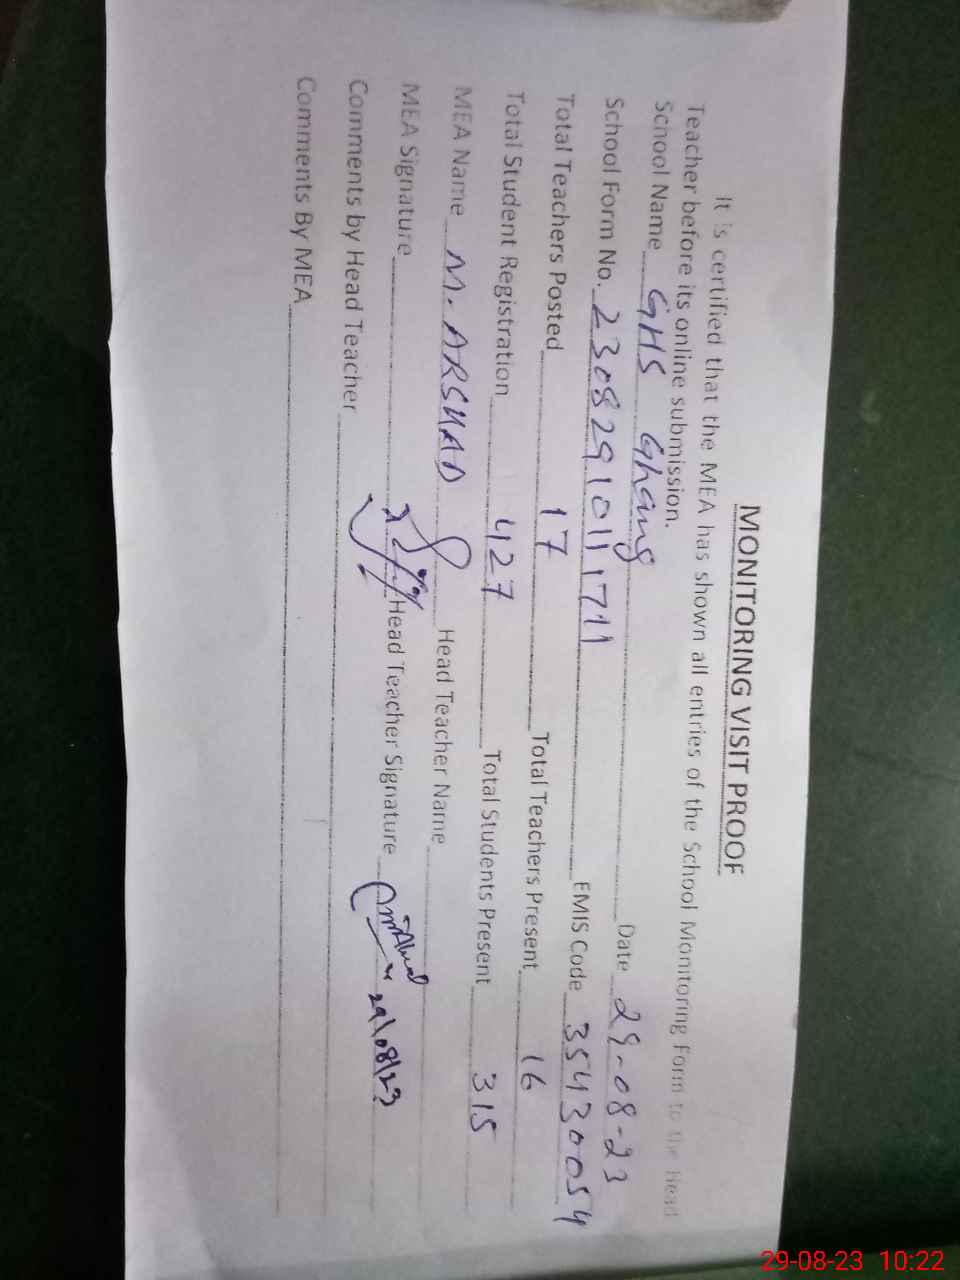 MONITORING VISIT PROOF
It is certified that the MEA has shown all entries of the School Monitoring Form to the Head
Teacher before its online submission.
School Name GHS Ghang Date 29-08-23
School Form No. 23082910111711 EMIS Code 35430054
Total Teachers Posted 17 Total Teachers Present 16
Total Student Registration 427 Total Students Present 315
MEA Name M. ARSHAD Head Teacher Name
MEA Signature Head Teacher Signature 29/08/23
Comments by Head Teacher
Comments By MEA
29-08-23 10:22